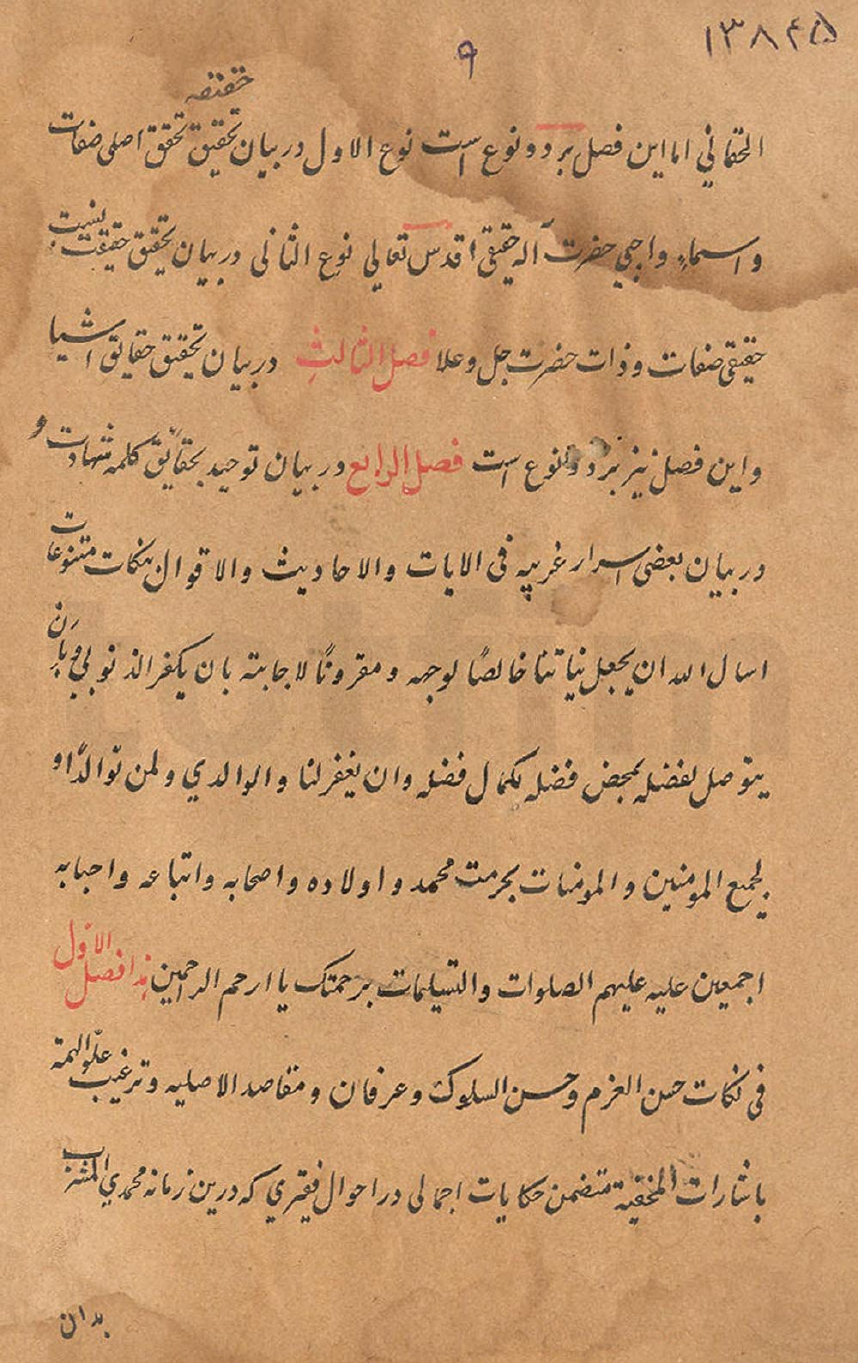 ۱۳۸۴۵
۹
حقنقه
الحقانی اما این فصل بر دو نوع است نوع الاول در بیان تحقیق تحقق اصلی صفات
واسماء واجبی حضرت آله حقیقی اقدس تعالی نوع الثانی در بیان تحقیق حقیقت نیست
حقیقی صفات و ذات حضرت جل وعلا فصل الثالث در بیان تحقیق حقایق اشیا
و این فصل نیز بر دو نوع است فصل الرابع در بیان توحید بحقایق کلمه شهادت و
در بیان بعضی اسرار غریبه فی الایات والاحادیث والاقوال بنکات متنوعات
اسال الله ان یجعل نیاتنا خالصًا لوجهه ومقرونًا لاجابته بان یکفر الذنوبی وبان
یتوصل لفضله بمحض فضله بکمال فضله وان یغفر لنا والوالدی ولمن توالدا و
لجمیع المومنین والمومنات بحرمت محمد واولاده واصحابه واتباعه واحبابه
اجمعین علیه علیهم الصلوات والتسلیمات برحمتک یا ارحم الراحمین هذا فصل الاول
فی نکات حسن العزم وحسن السلوک وعرفان ومقاصد الاصلیه وترغیب علو الهمة
باشارات المخفیة متضمن حکایات اجمالی در احوال فقیری که درین زمانه محمدی المشرب
بدان